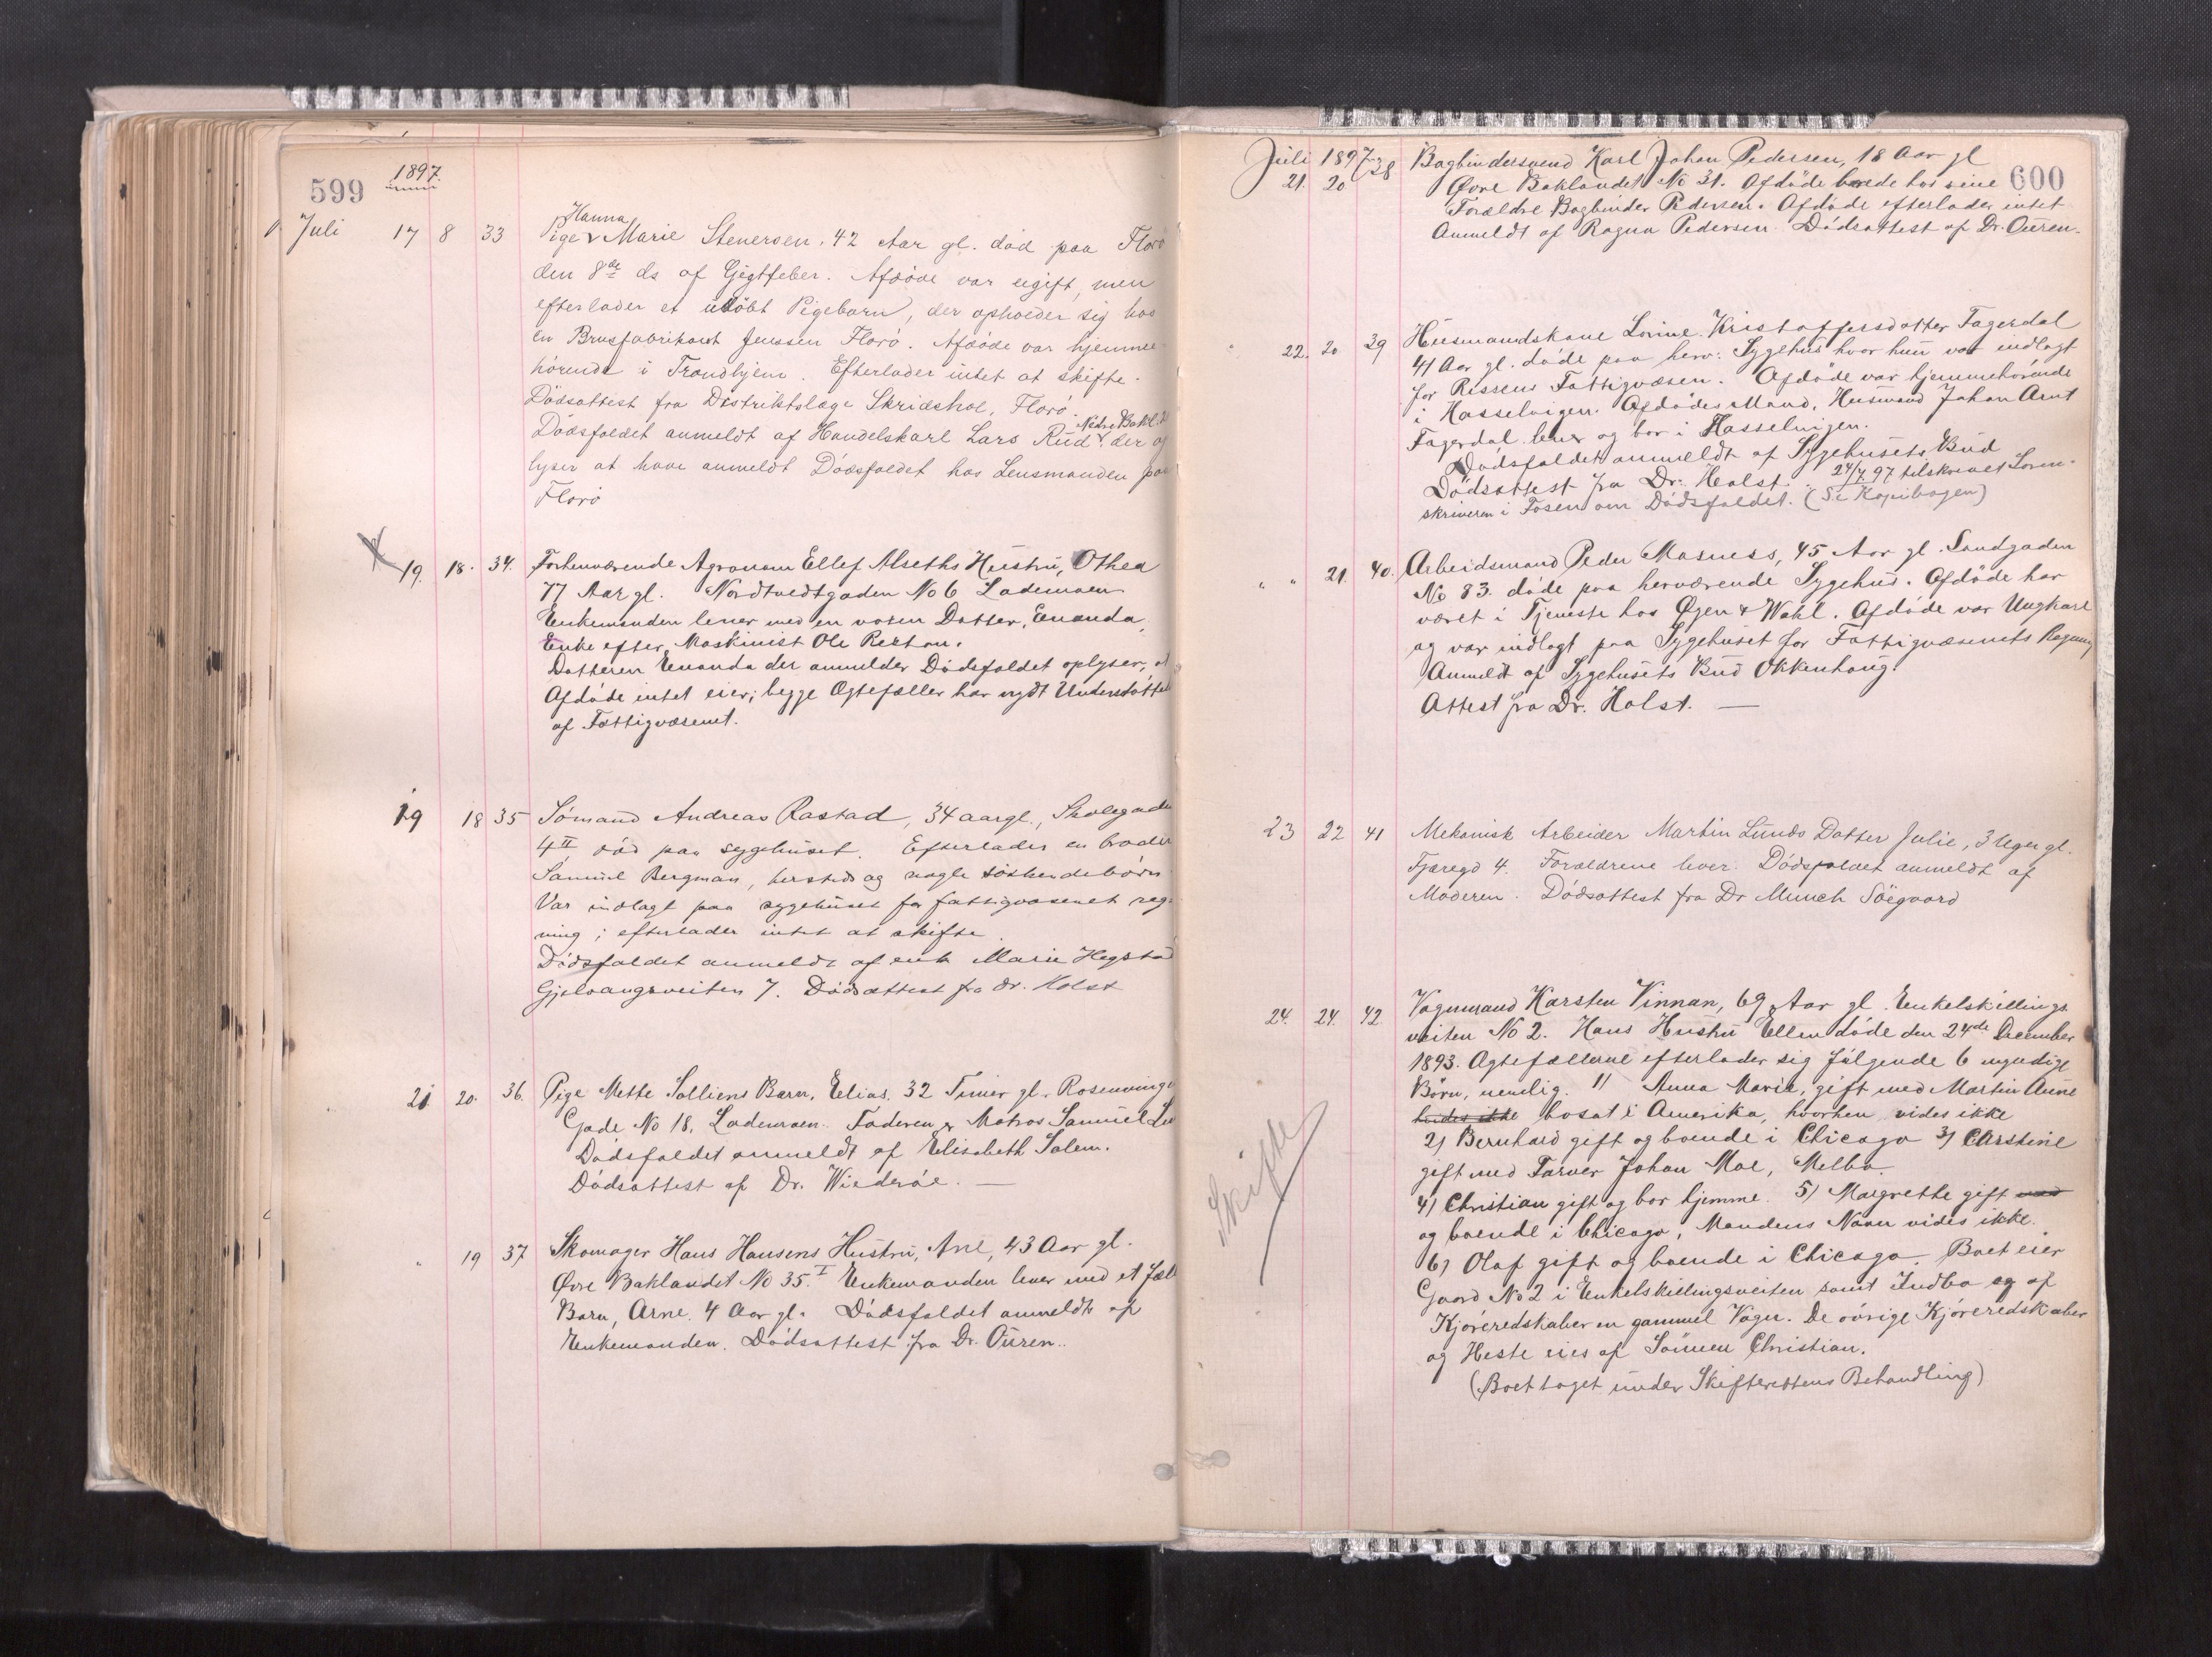 599
1897.
Juli 17 8 33 Pige Hanna Marie Stenersen, 42 Aar gl. död paa Florö
den 8de ds af Gigtfeber. Afdöde var ugift, men
efterlader et udöbt Pigebarn, der opholder sig hos
en Brusfabrikant Jenssen Florö. Afdöde var hjemme-
hörende i Trondhjem. Efterlader intet at skifte.
Dödsattest fra Distriktslæge Skridshol, Florö.
Dödsfaldet anmeldt af Handelskarl Lars Rud Nedre Bakl. der op
lyser at have anmeldt Dödsfaldet hos Lensmanden paa
Florö
19. 18. 34. Forhenværende Agronom Ellef Alseths Hustru, Othea
77 Aar gl. Nordtvedtgaden No 6 Lademoen
Enkemanden lever med en voxen Datter, Enanda,
Enke efter Maskinist Ole Reitan.
Datteren Enanda der anmelder Dödsfaldet oplyser, at
Afdöde intet eier; begge Ægtefæller har nydt Understöttel
af Fattigvæsenet.
19 18 35 Sömand Andreas Rastad, 34 aargl., Skolegade
4 II död paa sygehuset. Efterlader en broder
Samuel Bergman, hersteds og nogle söskendebörn
Var indlagt paa sygehuset for fattigvæsenet reg-
ning; efterlader intet at skifte
Dödsfaldet anmeldt af enke Marie Hegstad
Gjelvangsveiten 7. Dödsattest fra dr. Holst
21 20. 36. Pige Mette Solliens Barn, Elias, 32 Timer gl. Rosenvinge
Gade No 18, Lademoen. Faderen er Matros Samuel
Dödsfaldet anmeldt af Elisabeth Solem.
Dödsattest af Dr. Wiederöe. —
" 19 37 Skomager Hans Hansens Hustru, Ane, 43 Aar gl.
Övre Baklandet No 35. I Enkemanden lever med et fæl
Barn, Arne, 4 Aar gl. Dödsfaldet anmeldt af
Enkemanden. Dödsattest fra Dr. Ouren..
600
Juli 1897
21. 20 38 Bogbindersvend Karl Johan Pedersen, 18 Aar gl
Övre Baklandet No 31. Afdöde boede hos sine
Forældre Bogbinder Pedersen. Afdöde efterlader intet
Anmeldt af Ragna Pedersen. Dödsattest af Dr. Ouren.
22. 20 39 Husmandskone Lorine Kristoffersdatter Fagerdal
41 Aar gl. döde paa herv. Sygehus hvor hun var indlagt
for Rissens Fattigvæsen. Afdöde var hjemmehörende
i Hasselvigen. Afdödes Mand, Husmand Johan Arnt
Fagerdal lever og bor i Hasselvigen.
Dödsfaldet anmeldt af Sygehusets Bud
Dödsattest fra Dr. Holst. 24/7 97 tilskrevet Soren-
skriveren i Fosen om Dödsfaldet. (Se Kopibogen)
" " 21. 40. Arbeidsmand Peder Masness, 45 Aar gl. Sandgaden
No 83. döde paa herværende Sygehus. Afdöde har
været i Tjeneste hos Öyen & Wahl. Afdöde var Ungkarl
og var indlagt paa Sygehuset for Fattigvæsenets Regning
Anmeldt af Sygehusets Bud Okkenhaug.
Attest fra Dr. Holst. —
23 22 41 Mekanisk Arbeider Martin Lunds Datter Julie, 3 Uger gl.
Fjæregd 4. Forældrene lever. Dödsfaldet anmeldt af
Moderen. Dödsattest fra Dr Munch Söegaard
Skifte
24. 24. 42 Vognmand Karsten Vinnan, 69 Aar gl. Enkelskillings-
veiten No 2. Hans Hustru Ellen döde den 24de December
1893. Ægtefællerne efterlader sig fölgende 6 myndige
Börn, nemlig 1) Anna Marie, gift med Martin Aune
hvides ikke bosat i Amerika, hvorhen vides ikke
2) Bernhard gift og boende i Chicago 3) Carstine
gift med Farver Johan Moe, Melbo.
4) Christian gift og bor hjemme. 5) Margrethe gift med
og boende i Chicago, Mandens Navn vides ikke.
6) Olaf gift og boende i Chicago. Boet eier
Gaard No 2 i Enkelskillingsveiten samt Indbo og af
Kjöreredskaber en gammel Vogn. De övrige Kjöreredskaber
og Heste eies af Sönnen Christian.
(Boet taget under Skifterettens Behandling)